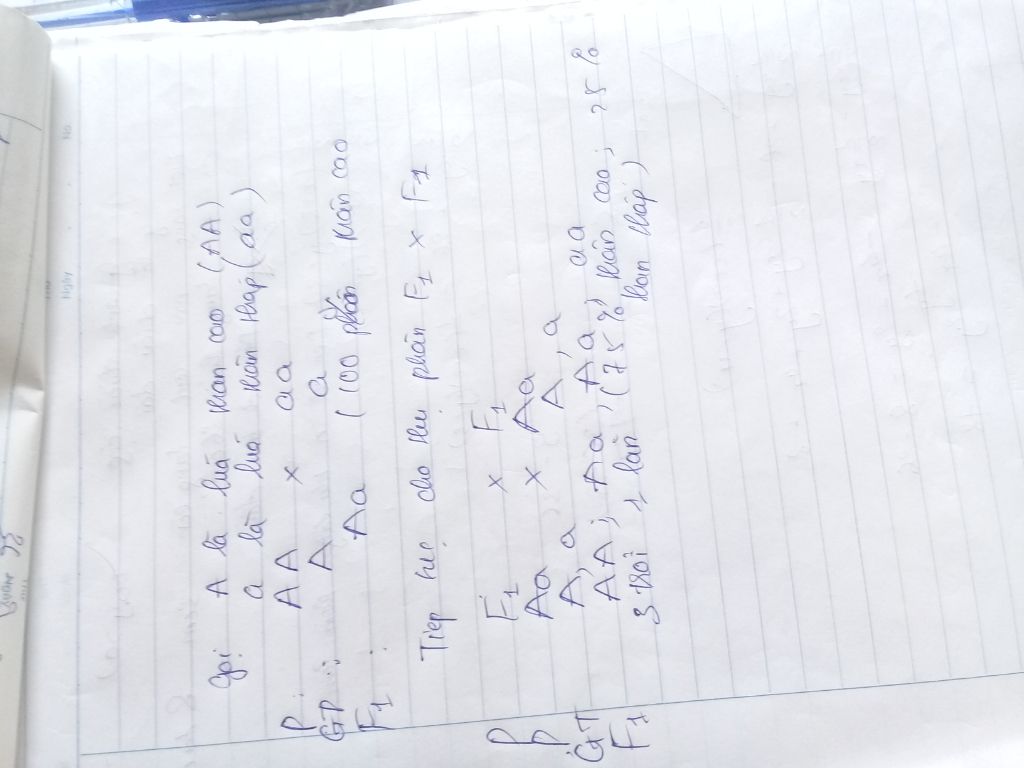 Gọi: A là lúa thân cao (AA)
a là lúa thân thấp (aa)
P: AA x aa
GP: A a
F1: Aa (100 thân cao
Tiếp tục cho thụ phấn F1 x F1
P F1 x F1
P Aa x Aa
GT A, a A, a
F1 AA; Aa, Aa, aa
3 trội, 1 lặn (75% thân cao; 25%
thân thấp)
Ngày
No.